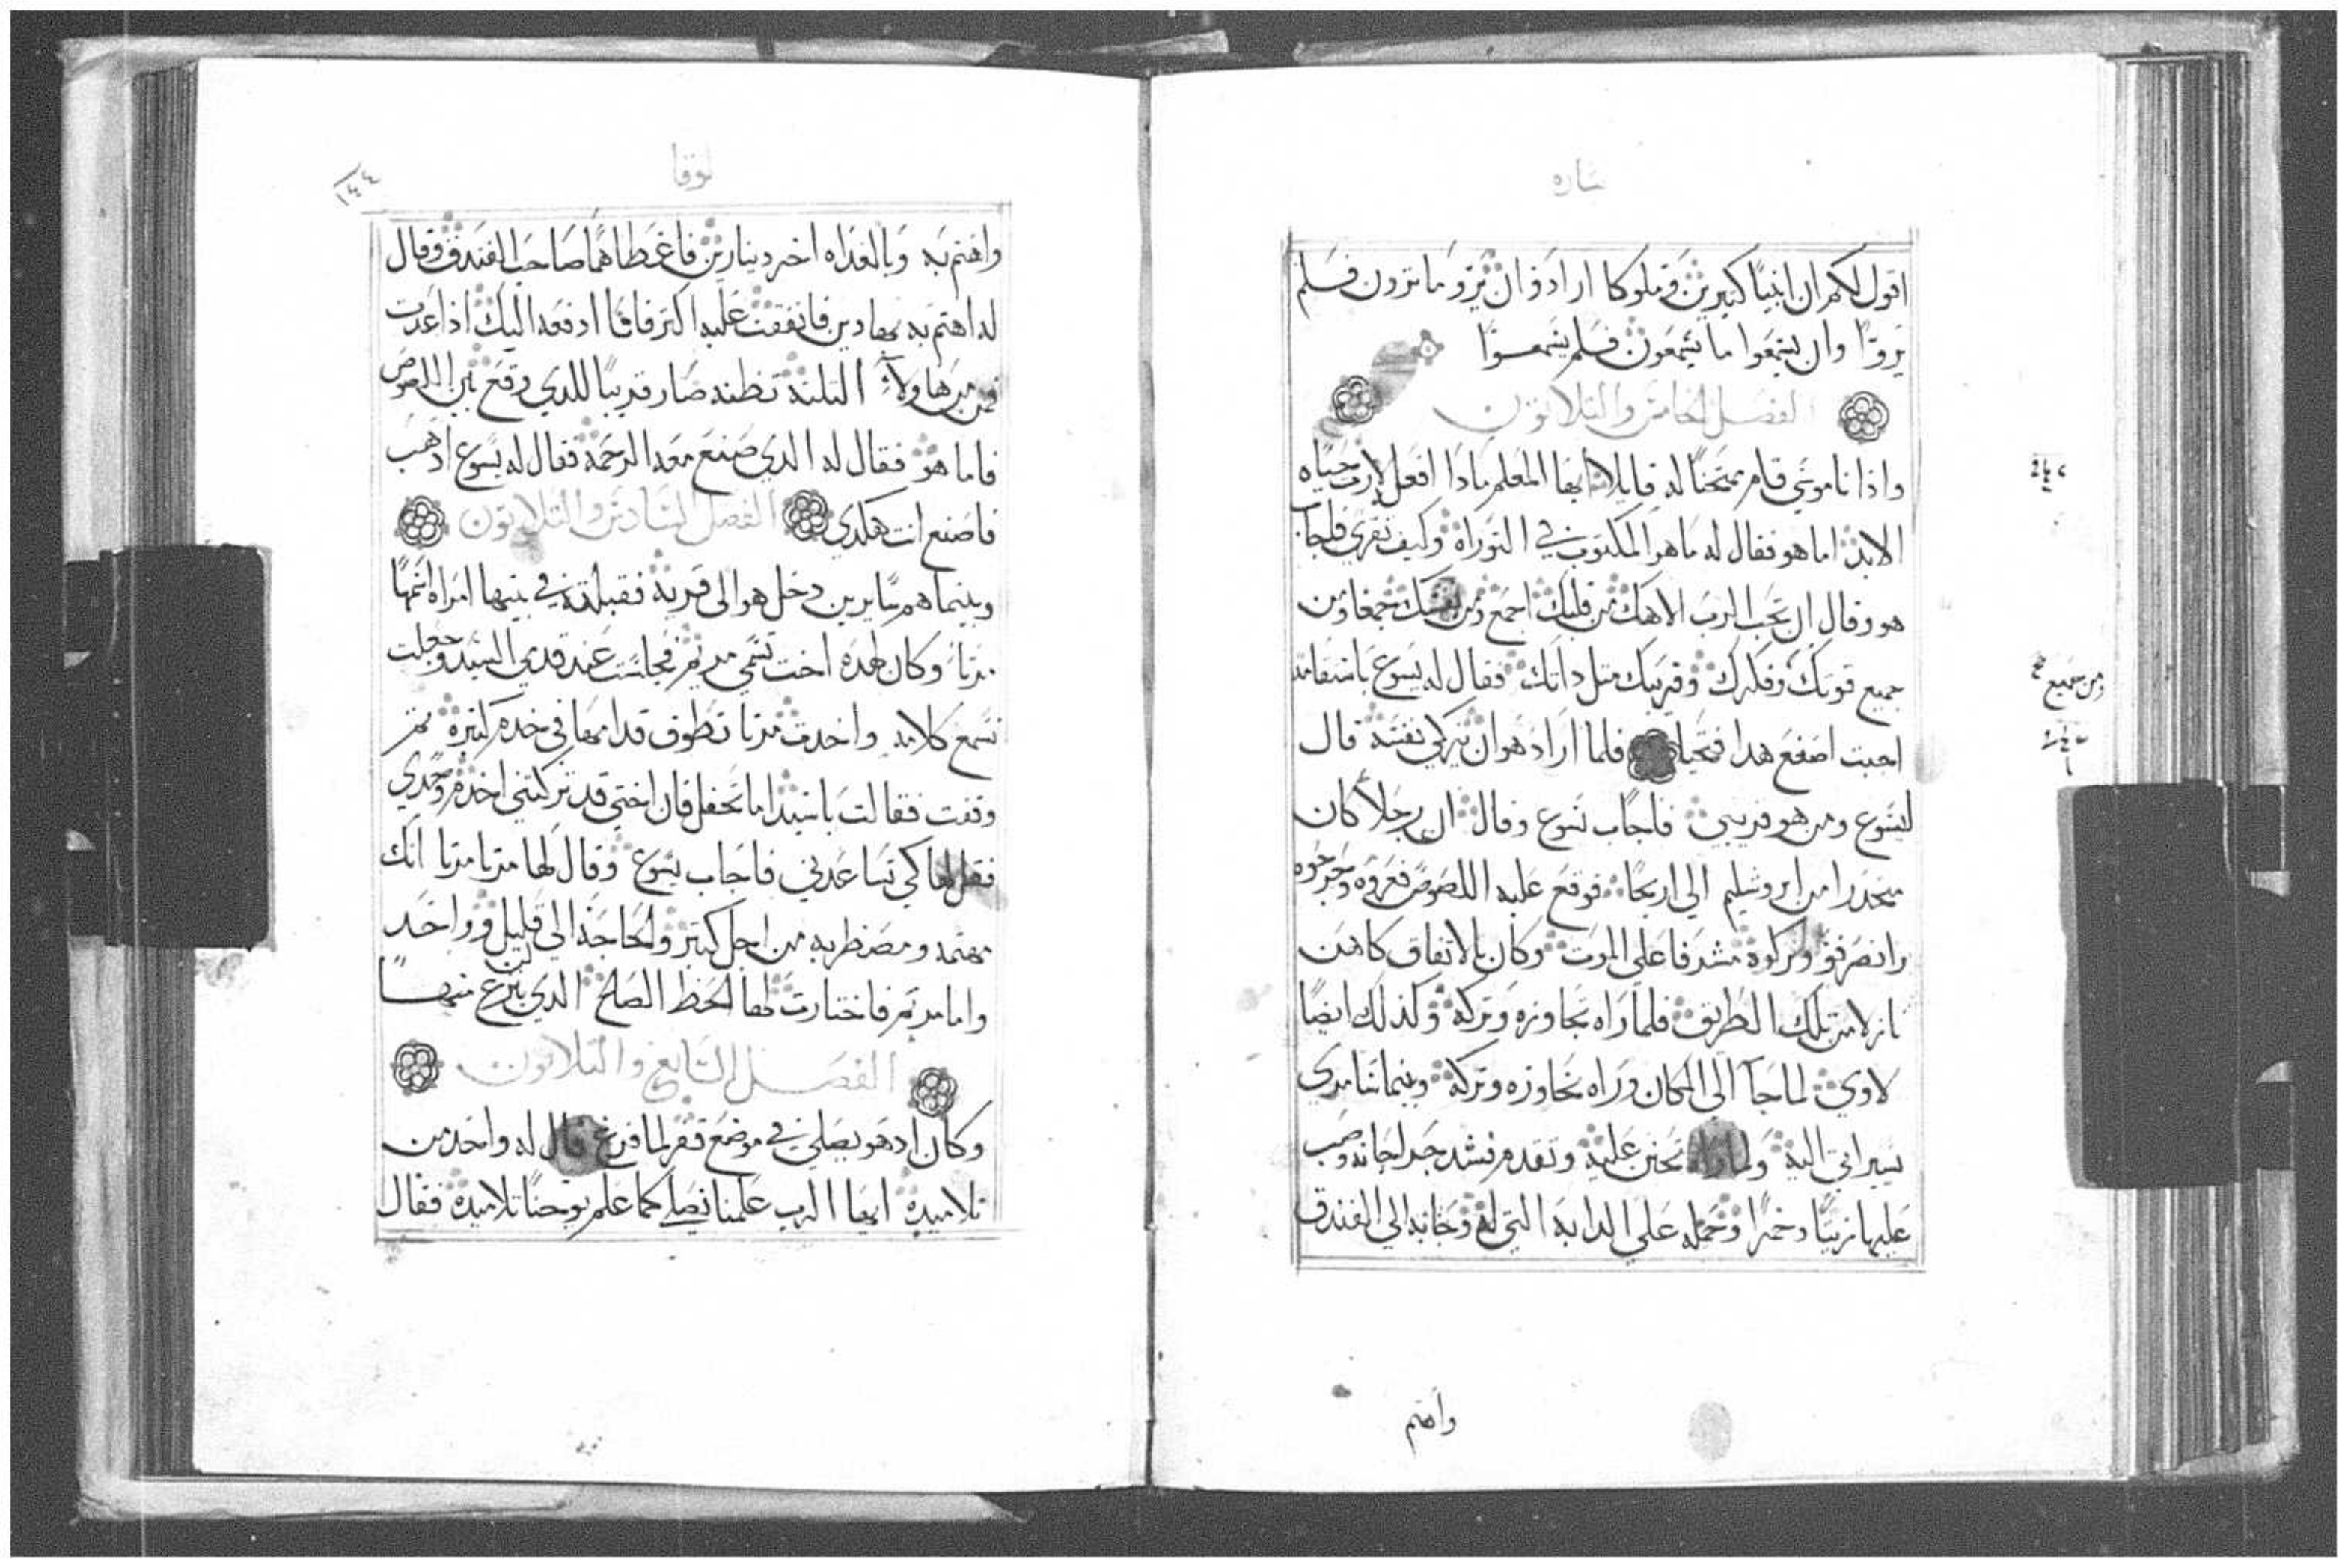 بشاره
اقول لكم ان انبيا كثيرين وملوكا ارادوا ان يروا ما ترون فلم
يروا وان يسمعوا ما تسمعون فلم يسمعوا
الفصل الخامس والثلاثون
واذا ناموسي قام ممتحنا له قايلا ايها المعلم ماذا افعل لارث حياه
الابد اما هو فقال له ما هو المكتوب في التوراه وكيف تقري فاجاب
هو وقال ان تحب الرب الاهك من قلبك اجمع ومن نفسك جمعا ومن
جميع قوتك وفكرك وقريبك مثل ذاتك فقال له يسوع باستقامه
اجبت اصنع هذا فتحيا فلما اراد هو ان يزكي نفسه قال
ليسوع ومن هو قريبي فاجاب يسوع وقال ان رجلا كان
منحدرا من ايروشليم الى اريحا فوقع عليه اللصوص فعروه وجرحوه
وانصرفوا وتركوه مشرفا على الموت وكان بالاتفاق كاهن
نازلا من تلك الطريق فلما راه تجاوزه وتركه وكذلك ايضا
لاوي لما جا الى المكان وراه تجاوزه وتركه وبينما سامري
يسير اتى اليه ولما راه تحنن عليه وتقدم فشد جراحاته وصب
عليها زيتا وخمرا وحمله على الدابه التي له وجا به الى الفندق
ومن جميع
واهتم
لوقا
١٤٤
واهتم به وبالغداه اخرج دينارين فاعطاهما صاحب الفندق وقال
له اهتم به مهما انفقت عليه اكثر فانا ادفعه اليك اذا عدت
فمن من هاولاء الثلثه تظنه صار قريبا للدي وقع بين اللصوص
فاما هو فقال له الدي صنع معه الرحمه فقال له يسوع اذهب
فاصنع انت هكدي الفصل السادس والثلاثون
وبينما هم سايرين دخل هو الى قريه فقبلته في بيتها امراه اسمها
مرتا وكان لهده اخت تسمى مريم فجلست عند قدمي السيد وجعلت
تسمع كلامه واخدت مرتا تطوف قدامها في خدم كثيره ثم
وقفت فقالت يا سيد اما تحفل فان اختي قد تركتني اخدم وحدي
فقل لها كي تساعدني فاجاب يسوع وقال لها مرتا مرتا انك
مهتمه ومضطربه من اجل كثير والحاجه الى قليل او واحد
واما مريم فاختارت لها الحظ الصالح الدي لن ينزع منها
الفصل السابع والثلاثون
وكان اد هو يصلي في موضع قفر لما فرغ قال له واحد من
تلاميده ايها الرب علمنا نصلي كما علم يوحنا تلاميده فقال